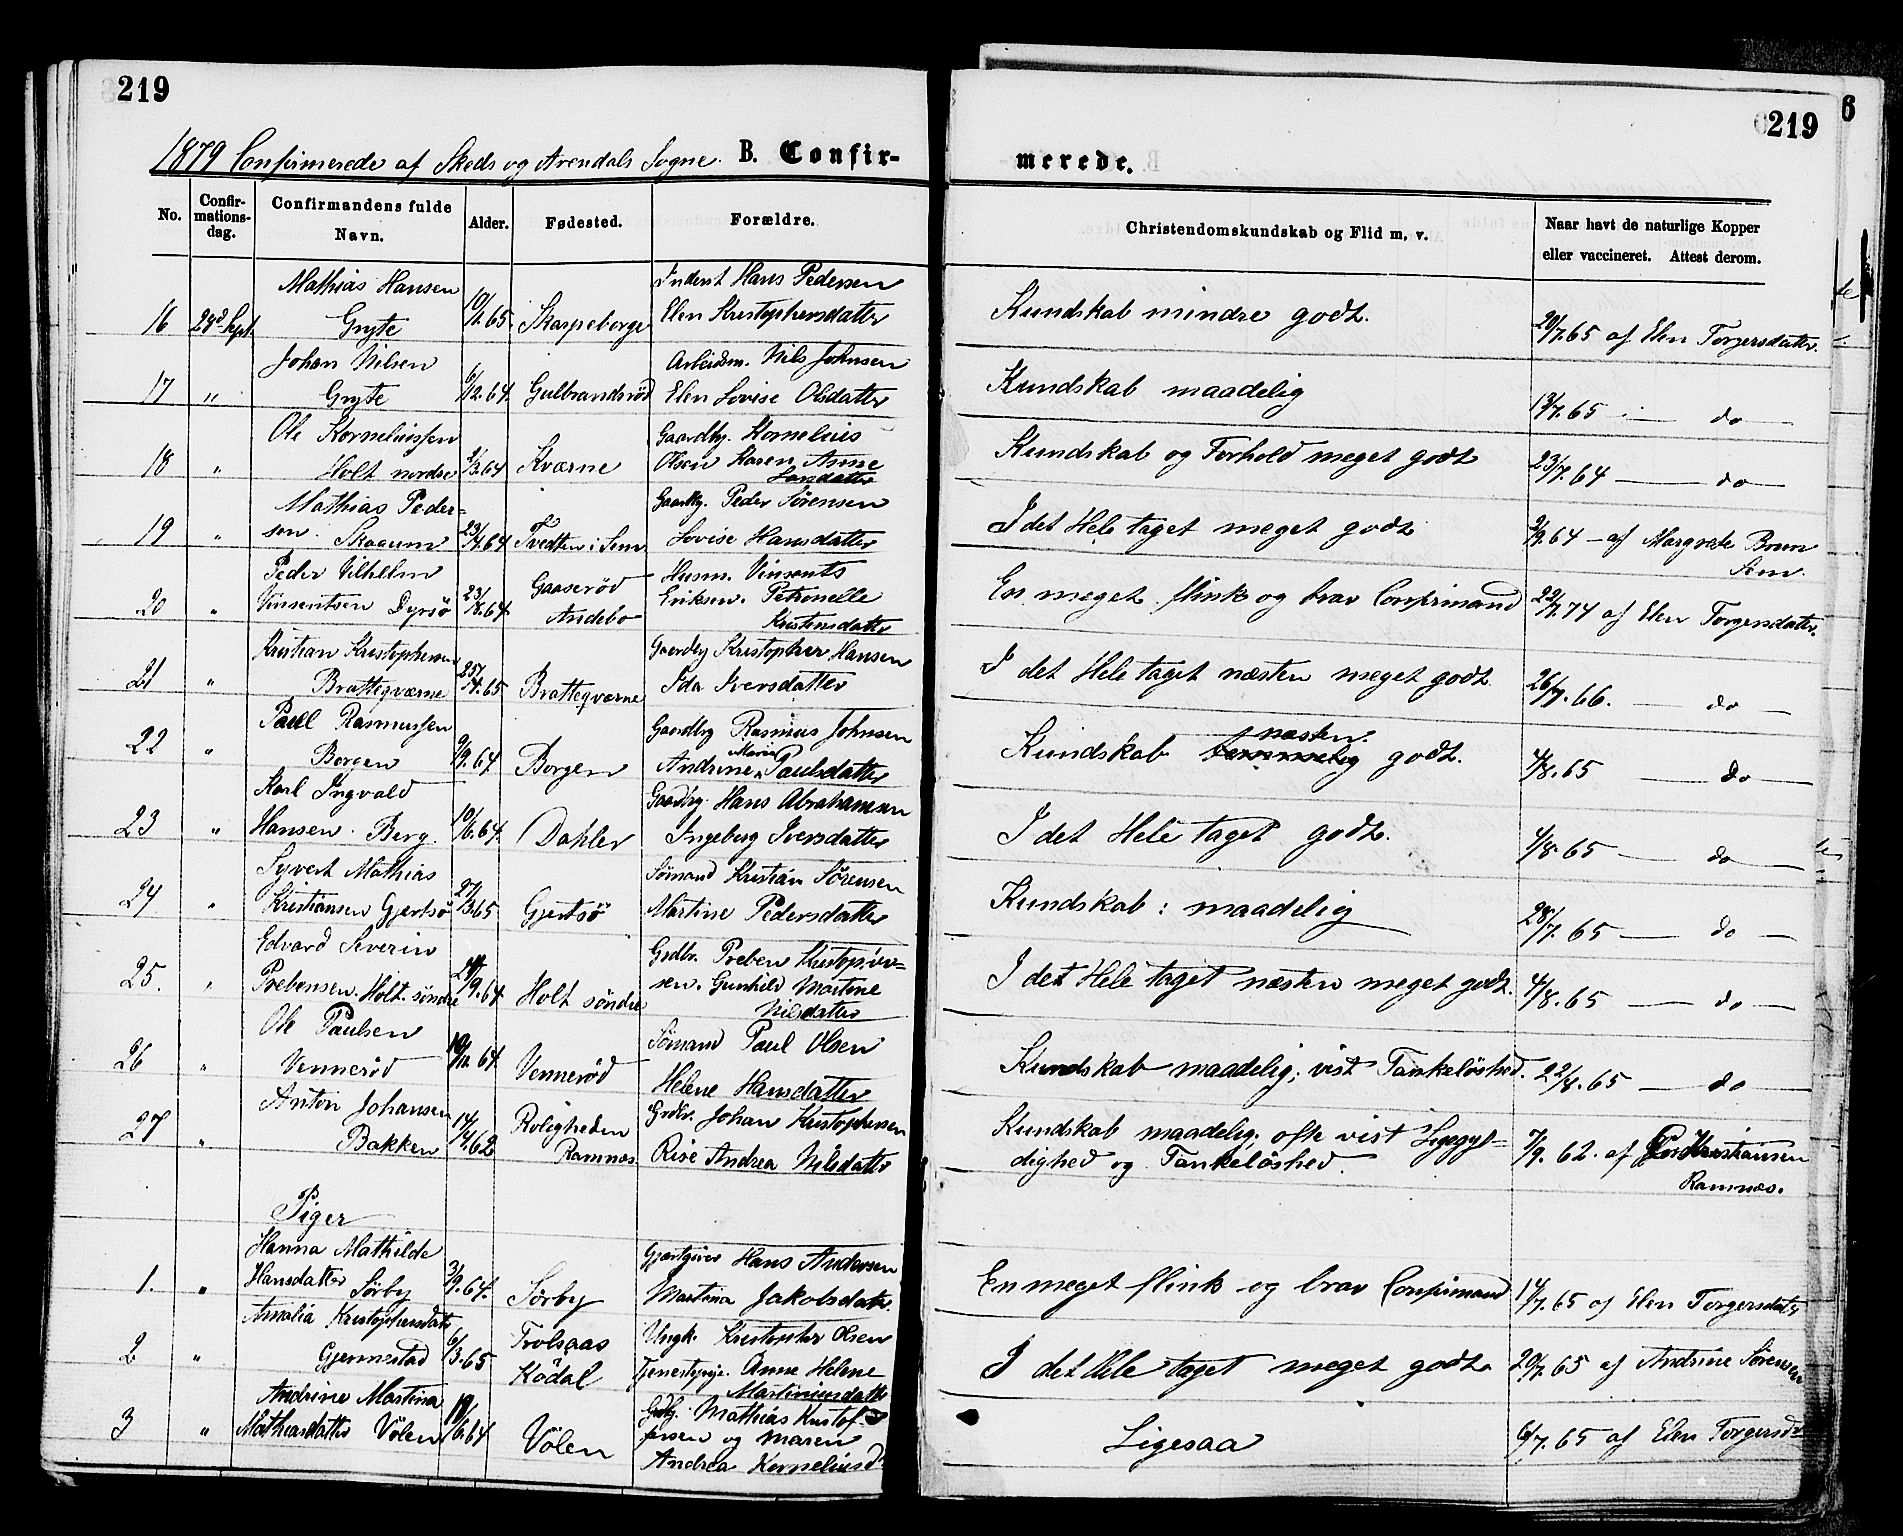 219
219
6
1879 Confirmerede af Skeds og Arendals Sogne. B. Confir-
merede.
No. Confirmationsdag. Confirmandens fulde Navn. Alder. Fødested. Forældre. Christendomskundskab og Flid m. v. Naar havt de naturlige Kopper eller vaccineret. Attest derom.
Mathias Hansen Inderst Hans Pedersen
16 28d Sept. Gryte 10/1.65. Skarpeborge Elen Kristophersdatter Kundskab mindre godt. 20/7.65 af Elen Torgersdatter.
Johan Nilsen Arbeidsm. Nils Johnsen
17 " Gryte 6/12.64. Gulbrandsröd Elen Lovise Olsdatter Kundskab maadelig 13/7.65 — do —
Ole Korneliussen Gaardbg. Kornelius
18 " Holt nordre 2/3.64 Kværne Olsen Karen Anne Kundskab og Forhold meget godt 23/7.64 — do —
Mathias Peder= Gaardbg. Peder Sørensen
19 " sen. Skaoum 23/4.64 Tvedten i Sem Lovise Hansdatter I det Hele taget meget godt 2/9.64 — af Margrete Brun
Sem.
Peder Vilhelm Gaaseröd Husm. Vinsents
20 " Vinsentsen Dyrsö 23/8.64 Andebo Eriksen. Petronelle En meget flink og brav Confirmand 22/7.74 af Elen Torgersdatter.
Kristensdatter
Kristian Kristophersen Gaardbg Kristopher Hansen
21 " Brattegværne 25/4.65 Brattegværne Ida Iversdatter I det Hele taget næsten meget godt 26/7.66. — do —
Paul Rasmussen Gaardbg Rasmus Johnsen næsten
22 " Borgen 9/9.64 Borgen Andrine Maria Paulsdatter Kundskab temmelig godt. 4/8.65 — do —
Karl Ingvald Gaardbg. Hans Abrahamsen
23 " Hansen. Berg. 10/6.64. Dahler Ingeborg Iversdatter I det Hele taget godt. 4/8.65 — do —
Syvert Mathias Sømand Kristian Sörensen
24 " Kristiansen Gjertsö 27/3.65 Gjertsö Martine Pedersdatter Kundskab: maadelig 28/7.65 — do —
Edvard Severin Grdbr. Preben
25. " Prebensen. Holt. söndre /9.64. Holt söndre sen. Gunhild Martine I det Hele taget næsten meget godt. 4/8.65 — do —
Nilsdatter
Ole Paulsen Sømand Paul Olsen
26 " Venneröd 64. Venneröd Helene Hansdatter Kundskab maadelig; vist Tankelöshed. 22/8.65 — do
Anton Johansen Roligheden Grdbr. Johan Kristophersen Kundskab maadelig; ofte vist Ligegyl=
27 " Bakken 14/4.62 Ramnæs. Rise Andrea Nilsdatter dighed og Tankelöshed. 7/9.62. af Kristiansen
Ramnæs.
Piger
Hanna Mathilde Gjæstgiver Hans Andersen
1. " Hansdatter Sörby 3/9.64. Sörby Martina Jakobsdatr. En meget flink og brav Confirmand 14/7.65 af Elen Torgersdatr
Amalia Kristophersdatr Trolsaas Ungk. Kristopher Olsen
2 " Gjennestad 6/3.65 Ködal Tjenestepige. Anne Helene I det Hele taget meget godt. 20/7.65 af Andrine Sörensen
Martiniusdatter
Andrine Martina Gbg. Mathias Kristof-
3 " Mathiasdatter Völen 64 Völen fersen og Maren Ligesaa 6/7.65 af Elen Torgersdr
Andrea Korneliusd